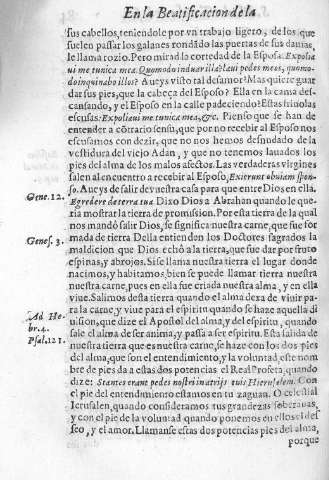 En la Beatificacion de la
sus cabellos, teniendole por vn trabajo ligero, de los que
suelen passar los galanes rondãdo las puertas de sus damas,
le llama rozio. Pero mirad la cortedad de la Esposa. Expolia
ui me tunica mea. Quomodo induar illa? laui pedes meos, quomo-
do inquinabo illos? Aueys visto tal desamor? Mas quiere guar
dar sus pies, que la cabeça del Esposo? Ella en la cama des-
cansando, y el Esposo en la calle padeciendo? Estas friuolas
escusas. Expoliaui me tunica mea, &c. Pienso que se han de
entender a cõtrario sensu, que por no recebir al Esposo nos
escusamos con dezir, que no nos hemos desnudado de la
vestidura del viejo Adan, y que no tenemos lauados los
pies del alma de los malos afectos. Las verdaderas virgines
salen al encuentro a recebir al Esposo, Exierunt obuiam spon-
so. Aueys de salir de vuestra casa para que entre Dios en ella.
Gene. 12. Egredere de terra tua Dixo Dios a Abrahan quando le que-
ria mostrar la tierra de promission. Por esta tierra de la qual
nos mandò salir Dios, se significa nuestra carne, que fue for
Genes. 3. mada de tierra Della entienden los Doctores sagrados la
maldicion que Dios echò a la tierra, que fue dar por fruto
espinas, y abrojos. Si se llama nuestra tierra el lugar donde
nacimos, y habitamos, bien se puede llamar tierra nuestra
nuestra carne, pues en ella fue criada nuestra alma, y en ella
viue. Salimos desta tierra quando el alma dexa de viuir pa-
ra la carne, y viue para el espiritu quando se haze aquella di
Ad He-
br. 4. uision, que dize el Apostol del alma, y del espiritu, quando
sale el alma de ser anima, y passa a ser espiritu. Esta salida de
Psal. 121. nuestra tierra que es nuestra carne, se haze con los dos pies
del alma, que son el entendimiento, y la voluntad, este nom
bre de pies da a estas dos potencias el Real Profeta, quando
dize: Stantes erant pedes nostri in atrijs tuis Hierusalem. Con
el pie del entendimiento estamos en tu zaguan. O celestial
Ierusalen, quando consideramos tus grandezas soberanas,
y con el pie de la voluntad quando ponemos en ellos el de
seo, y el amor. Llamanse estas dos potencias pies del alma,
porque